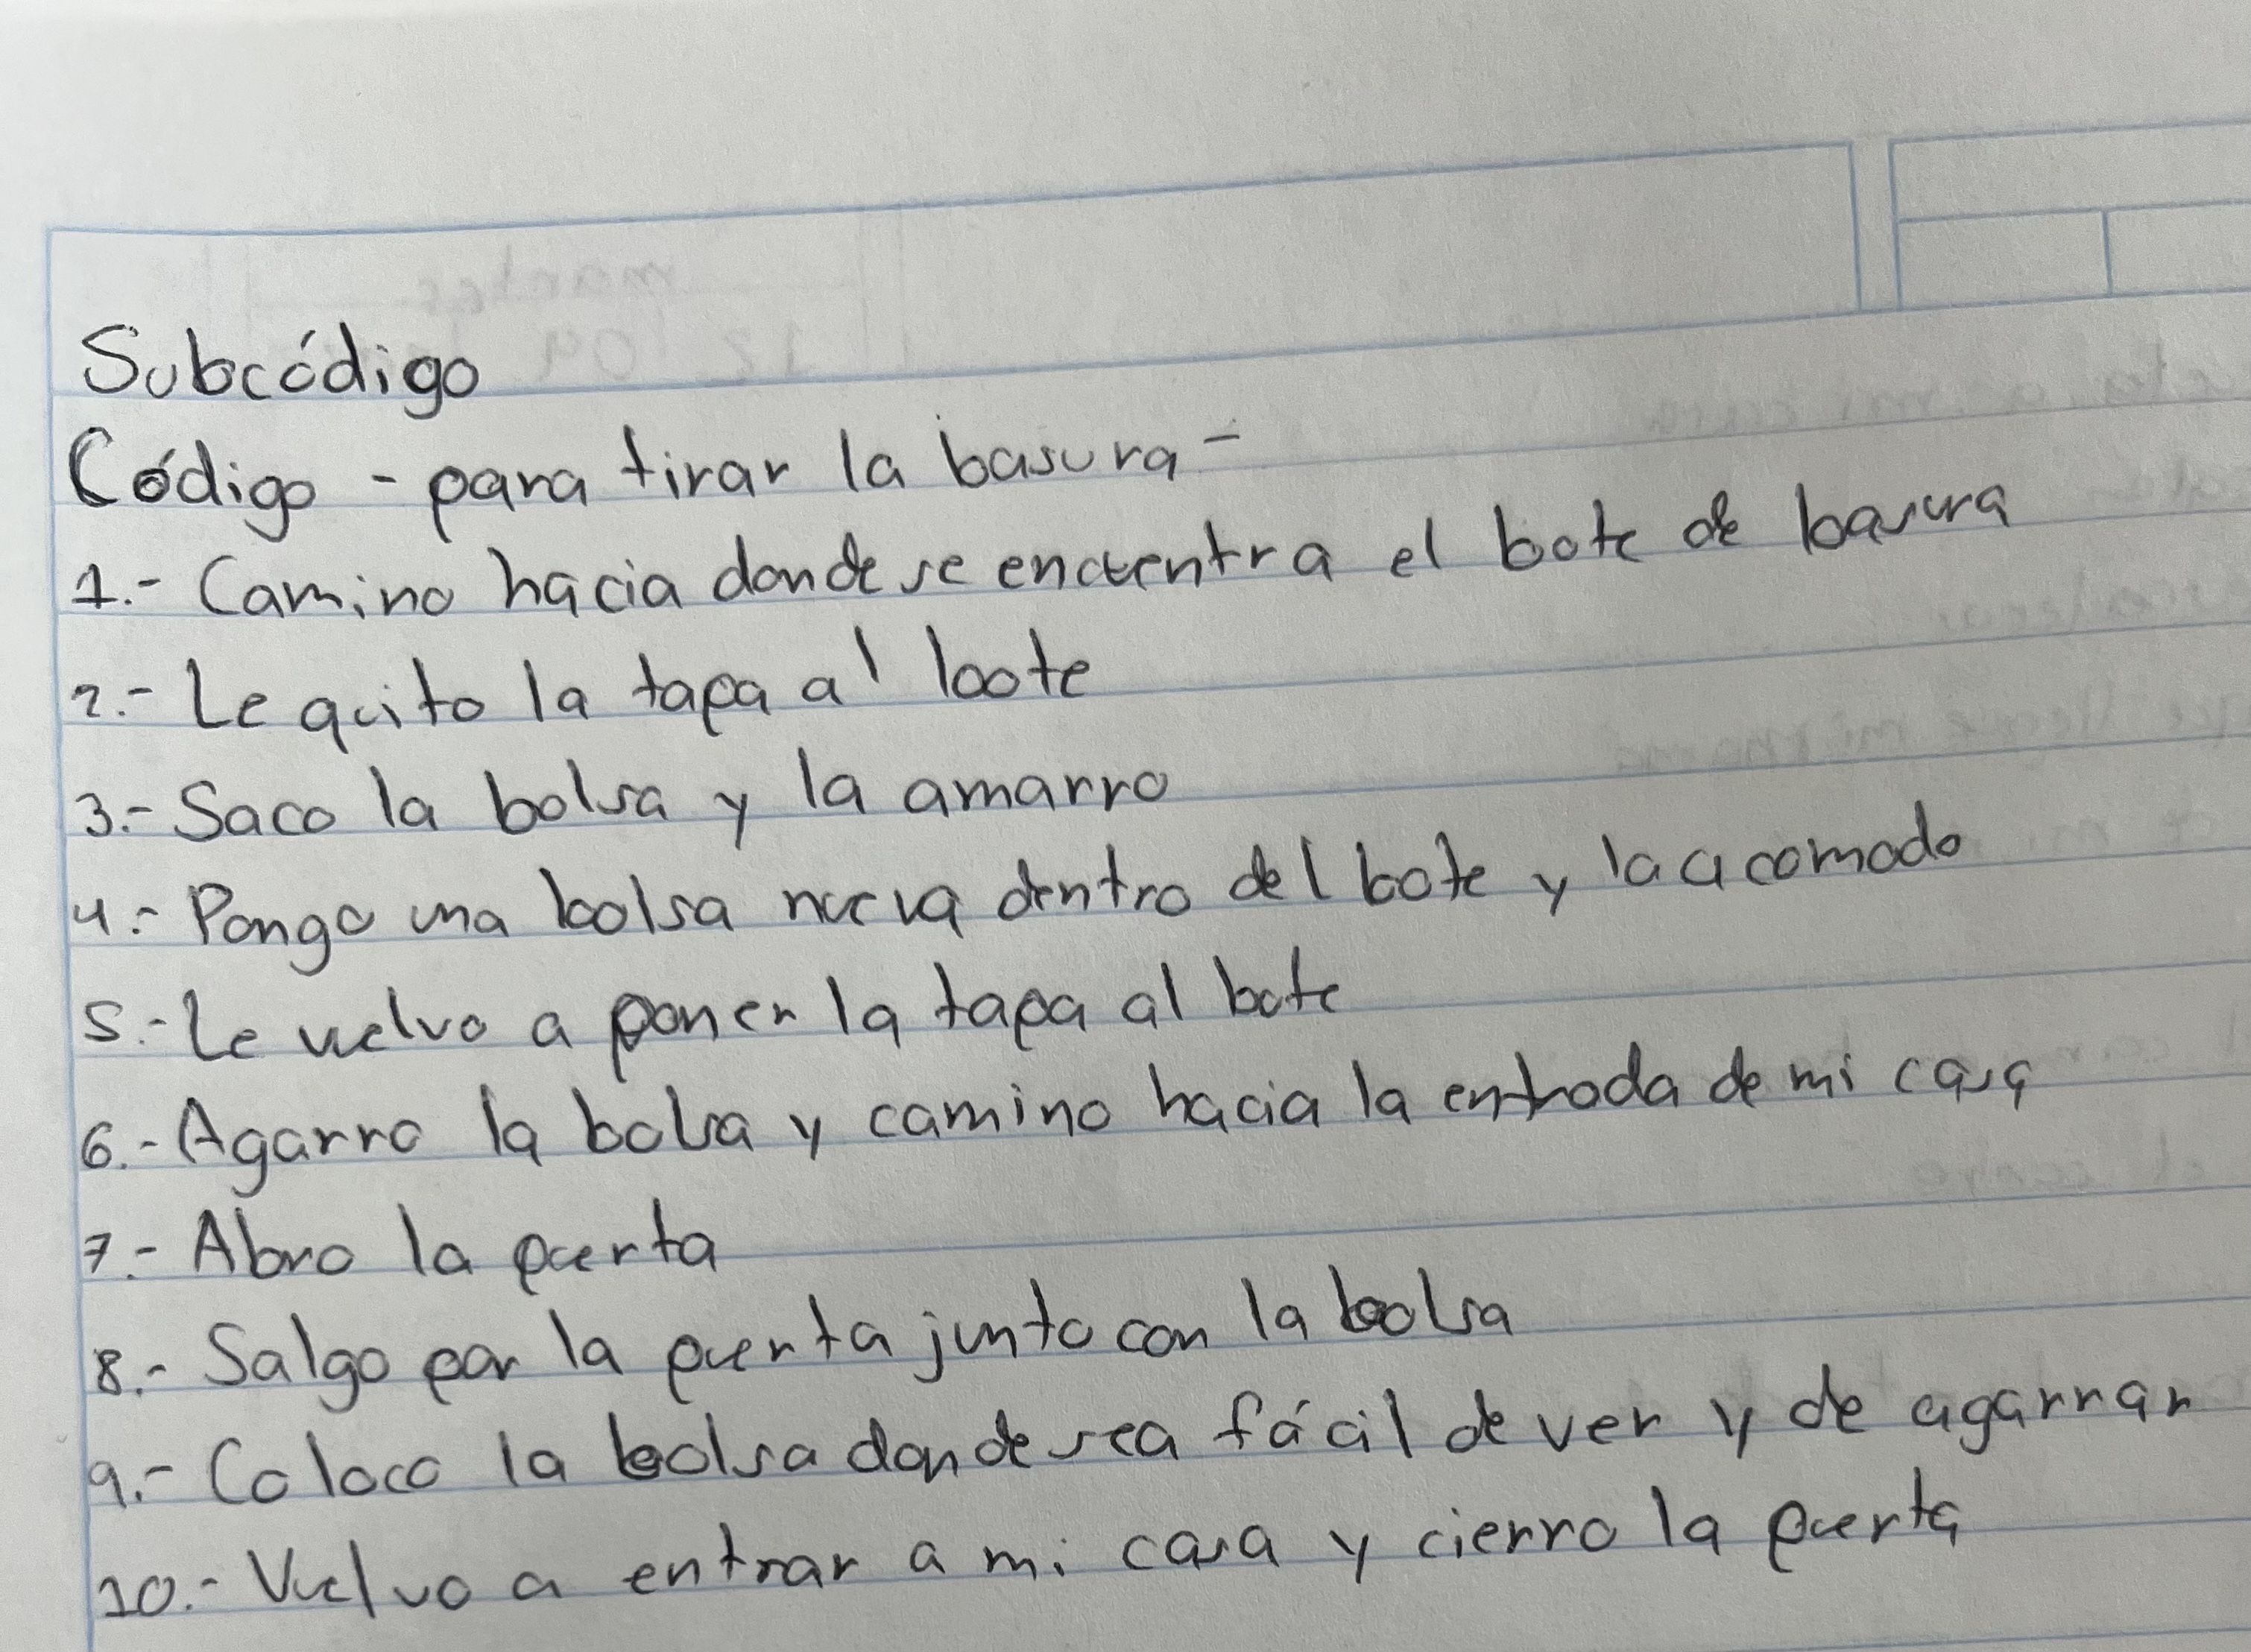 Subcódigo
Código - para tirar la basura -
1.- Camino hacia donde se encuentra el bote de basura
2.- Le quito la tapa al bote
3.- Saco la bolsa y la amarro
4.- Pongo una bolsa nueva dentro del bote y la acomodo
5.- Le vuelvo a poner la tapa al bote
6.- Agarro la bolsa y camino hacia la entrada de mi casa
7.- Abro la puerta
8.- Salgo por la puerta junto con la bolsa
9.- Coloco la bolsa donde sea fácil de ver y de agarrar
10.- Vuelvo a entrar a mi casa y cierro la puerta